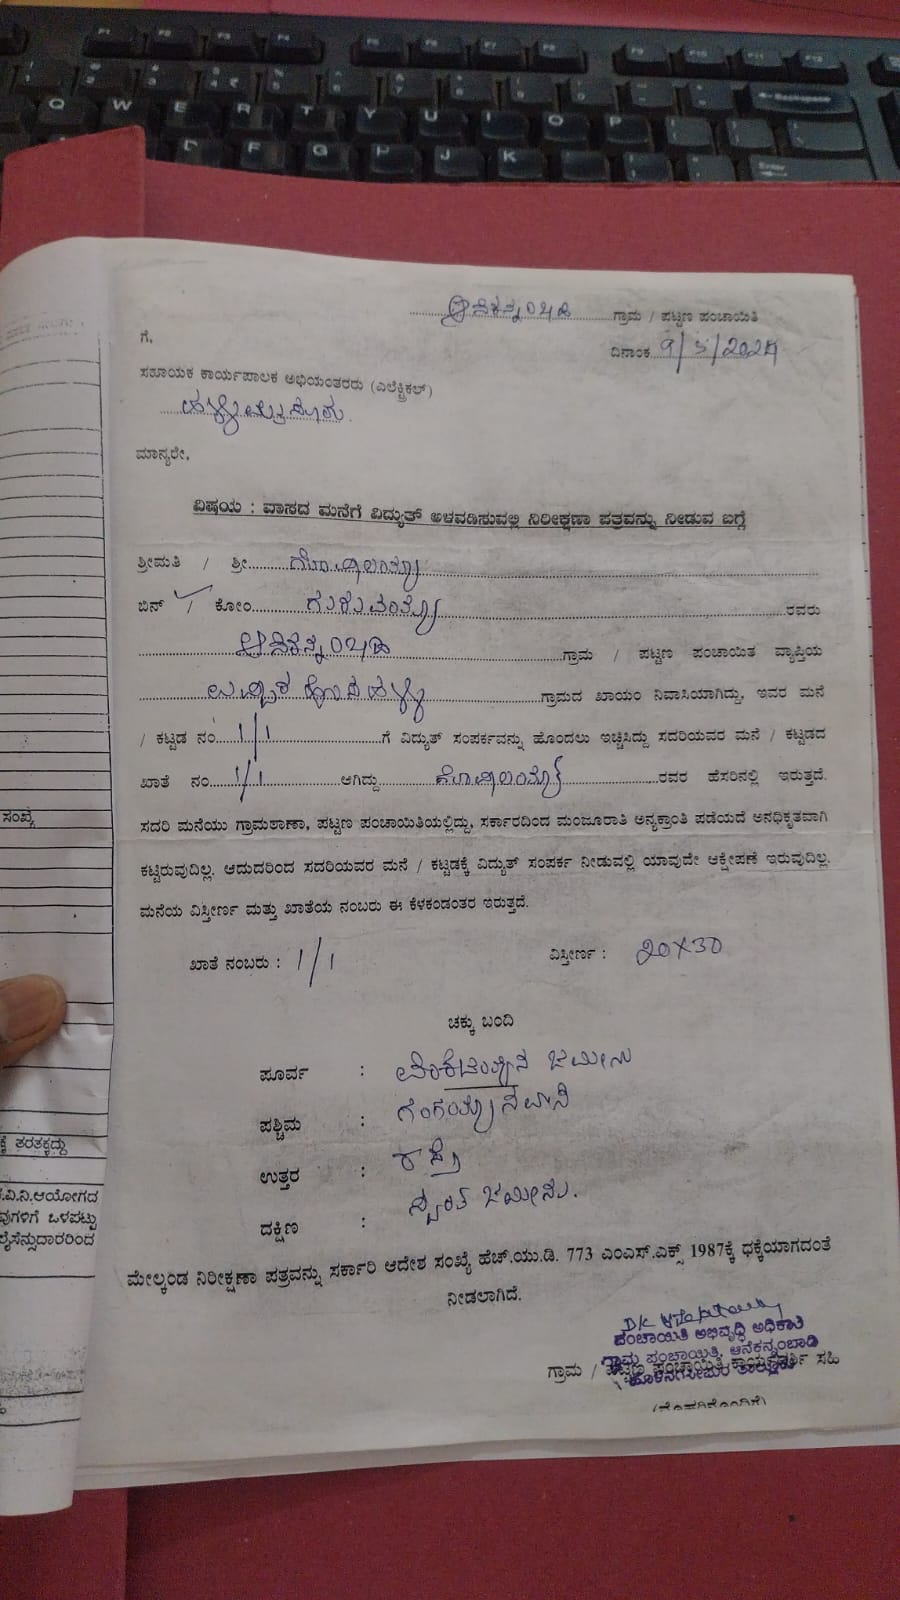 ಗ್ರಾಮ / ಪಟ್ಟಣ ಪಂಚಾಯಿತಿ
ಗೆ,
ದಿನಾಂಕ 9/5/2024
ಸಹಾಯಕ ಕಾರ್ಯಪಾಲಕ ಅಭಿಯಂತರರು (ಎಲೆಕ್ಟ್ರಿಕಲ್)
ಮಾನ್ಯರೇ,
ವಿಷಯ : ವಾಸದ ಮನೆಗೆ ವಿದ್ಯುತ್ ಅಳವಡಿಸುವಲ್ಲಿ ನಿರೀಕ್ಷಣಾ ಪತ್ರವನ್ನು ನೀಡುವ ಬಗ್ಗೆ
ಶ್ರೀಮತಿ / ಶ್ರೀ
ಬಿನ್ / ಕೋಂ ರವರು
ಗ್ರಾಮ / ಪಟ್ಟಣ ಪಂಚಾಯಿತ ವ್ಯಾಪ್ತಿಯ
ಗ್ರಾಮದ ಖಾಯಂ ನಿವಾಸಿಯಾಗಿದ್ದು, ಇವರ ಮನೆ
/ ಕಟ್ಟಡ ನಂ. 1/1 ಗೆ ವಿದ್ಯುತ್ ಸಂಪರ್ಕವನ್ನು ಹೊಂದಲು ಇಚ್ಚಿಸಿದ್ದು ಸದರಿಯವರ ಮನೆ / ಕಟ್ಟಡದ
ಖಾತೆ ನಂ. 1/1 ಆಗಿದ್ದು ರವರ ಹೆಸರಿನಲ್ಲಿ ಇರುತ್ತದೆ.
ಸದರಿ ಮನೆಯು ಗ್ರಾಮಠಾಣಾ, ಪಟ್ಟಣ ಪಂಚಾಯಿತಿಯಲ್ಲಿದ್ದು, ಸರ್ಕಾರದಿಂದ ಮಂಜೂರಾತಿ ಅನ್ಯಕ್ರಾಂತಿ ಪಡೆಯದೆ ಅನಧಿಕೃತವಾಗಿ
ಕಟ್ಟಿರುವುದಿಲ್ಲ. ಆದುದರಿಂದ ಸದರಿಯವರ ಮನೆ / ಕಟ್ಟಡಕ್ಕೆ ವಿದ್ಯುತ್ ಸಂಪರ್ಕ ನೀಡುವಲ್ಲಿ ಯಾವುದೇ ಆಕ್ಷೇಪಣೆ ಇರುವುದಿಲ್ಲ.
ಮನೆಯ ವಿಸ್ತೀರ್ಣ ಮತ್ತು ಖಾತೆಯ ನಂಬರು ಈ ಕೆಳಕಂಡಂತರ ಇರುತ್ತದೆ.
ಖಾತೆ ನಂಬರು : 1/1 ವಿಸ್ತೀರ್ಣ : 20X30
ಚಕ್ಕು ಬಂದಿ
ಪೂರ್ವ : ಜಮೀನು
ಪಶ್ಚಿಮ :
ಉತ್ತರ : ರಸ್ತೆ
ದಕ್ಷಿಣ : ಸ್ವಂತ ಜಮೀನು.
ಮೇಲ್ಕಂಡ ನಿರೀಕ್ಷಣಾ ಪತ್ರವನ್ನು ಸರ್ಕಾರಿ ಆದೇಶ ಸಂಖ್ಯೆ ಹೆಚ್.ಯು.ಡಿ. 773 ಎಂಎಸ್.ಎಕ್ಸ್ 1987ಕ್ಕೆ ಧಕ್ಕೆಯಾಗದಂತೆ
ನೀಡಲಾಗಿದೆ.
ಪಂಚಾಯಿತಿ ಅಭಿವೃದ್ಧಿ ಅಧಿಕಾರಿ
ಗ್ರಾಮ ಪಂಚಾಯಿತಿ, ಆನೆಕನ್ನಂಬಾಡಿ
ಹೊಳೆನರಸೀಪುರ ತಾಲ್ಲೂಕು
ಗ್ರಾಮ / ಪಟ್ಟಣ ಪಂಚಾಯಿತಿ ಕಾರ್ಯದರ್ಶಿ ಸಹಿ
(ಮೊಹರಿನೊಂದಿಗೆ)
ಸಂಖ್ಯೆ
ಕ್ಕೆ ತರತಕ್ಕದ್ದು
.ವಿ.ನಿ.ಆಯೋಗದ
ವುಗಳಿಗೆ ಒಳಪಟ್ಟು
ಲೈಸೆನ್ಸುದಾರರಿಂದ